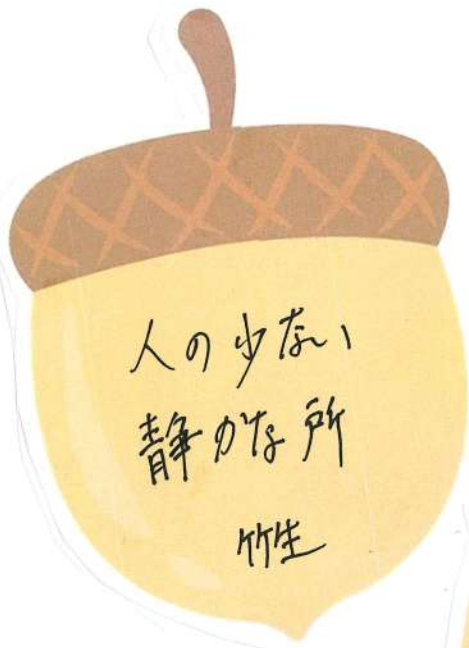 人の少ない
静かな所
竹生